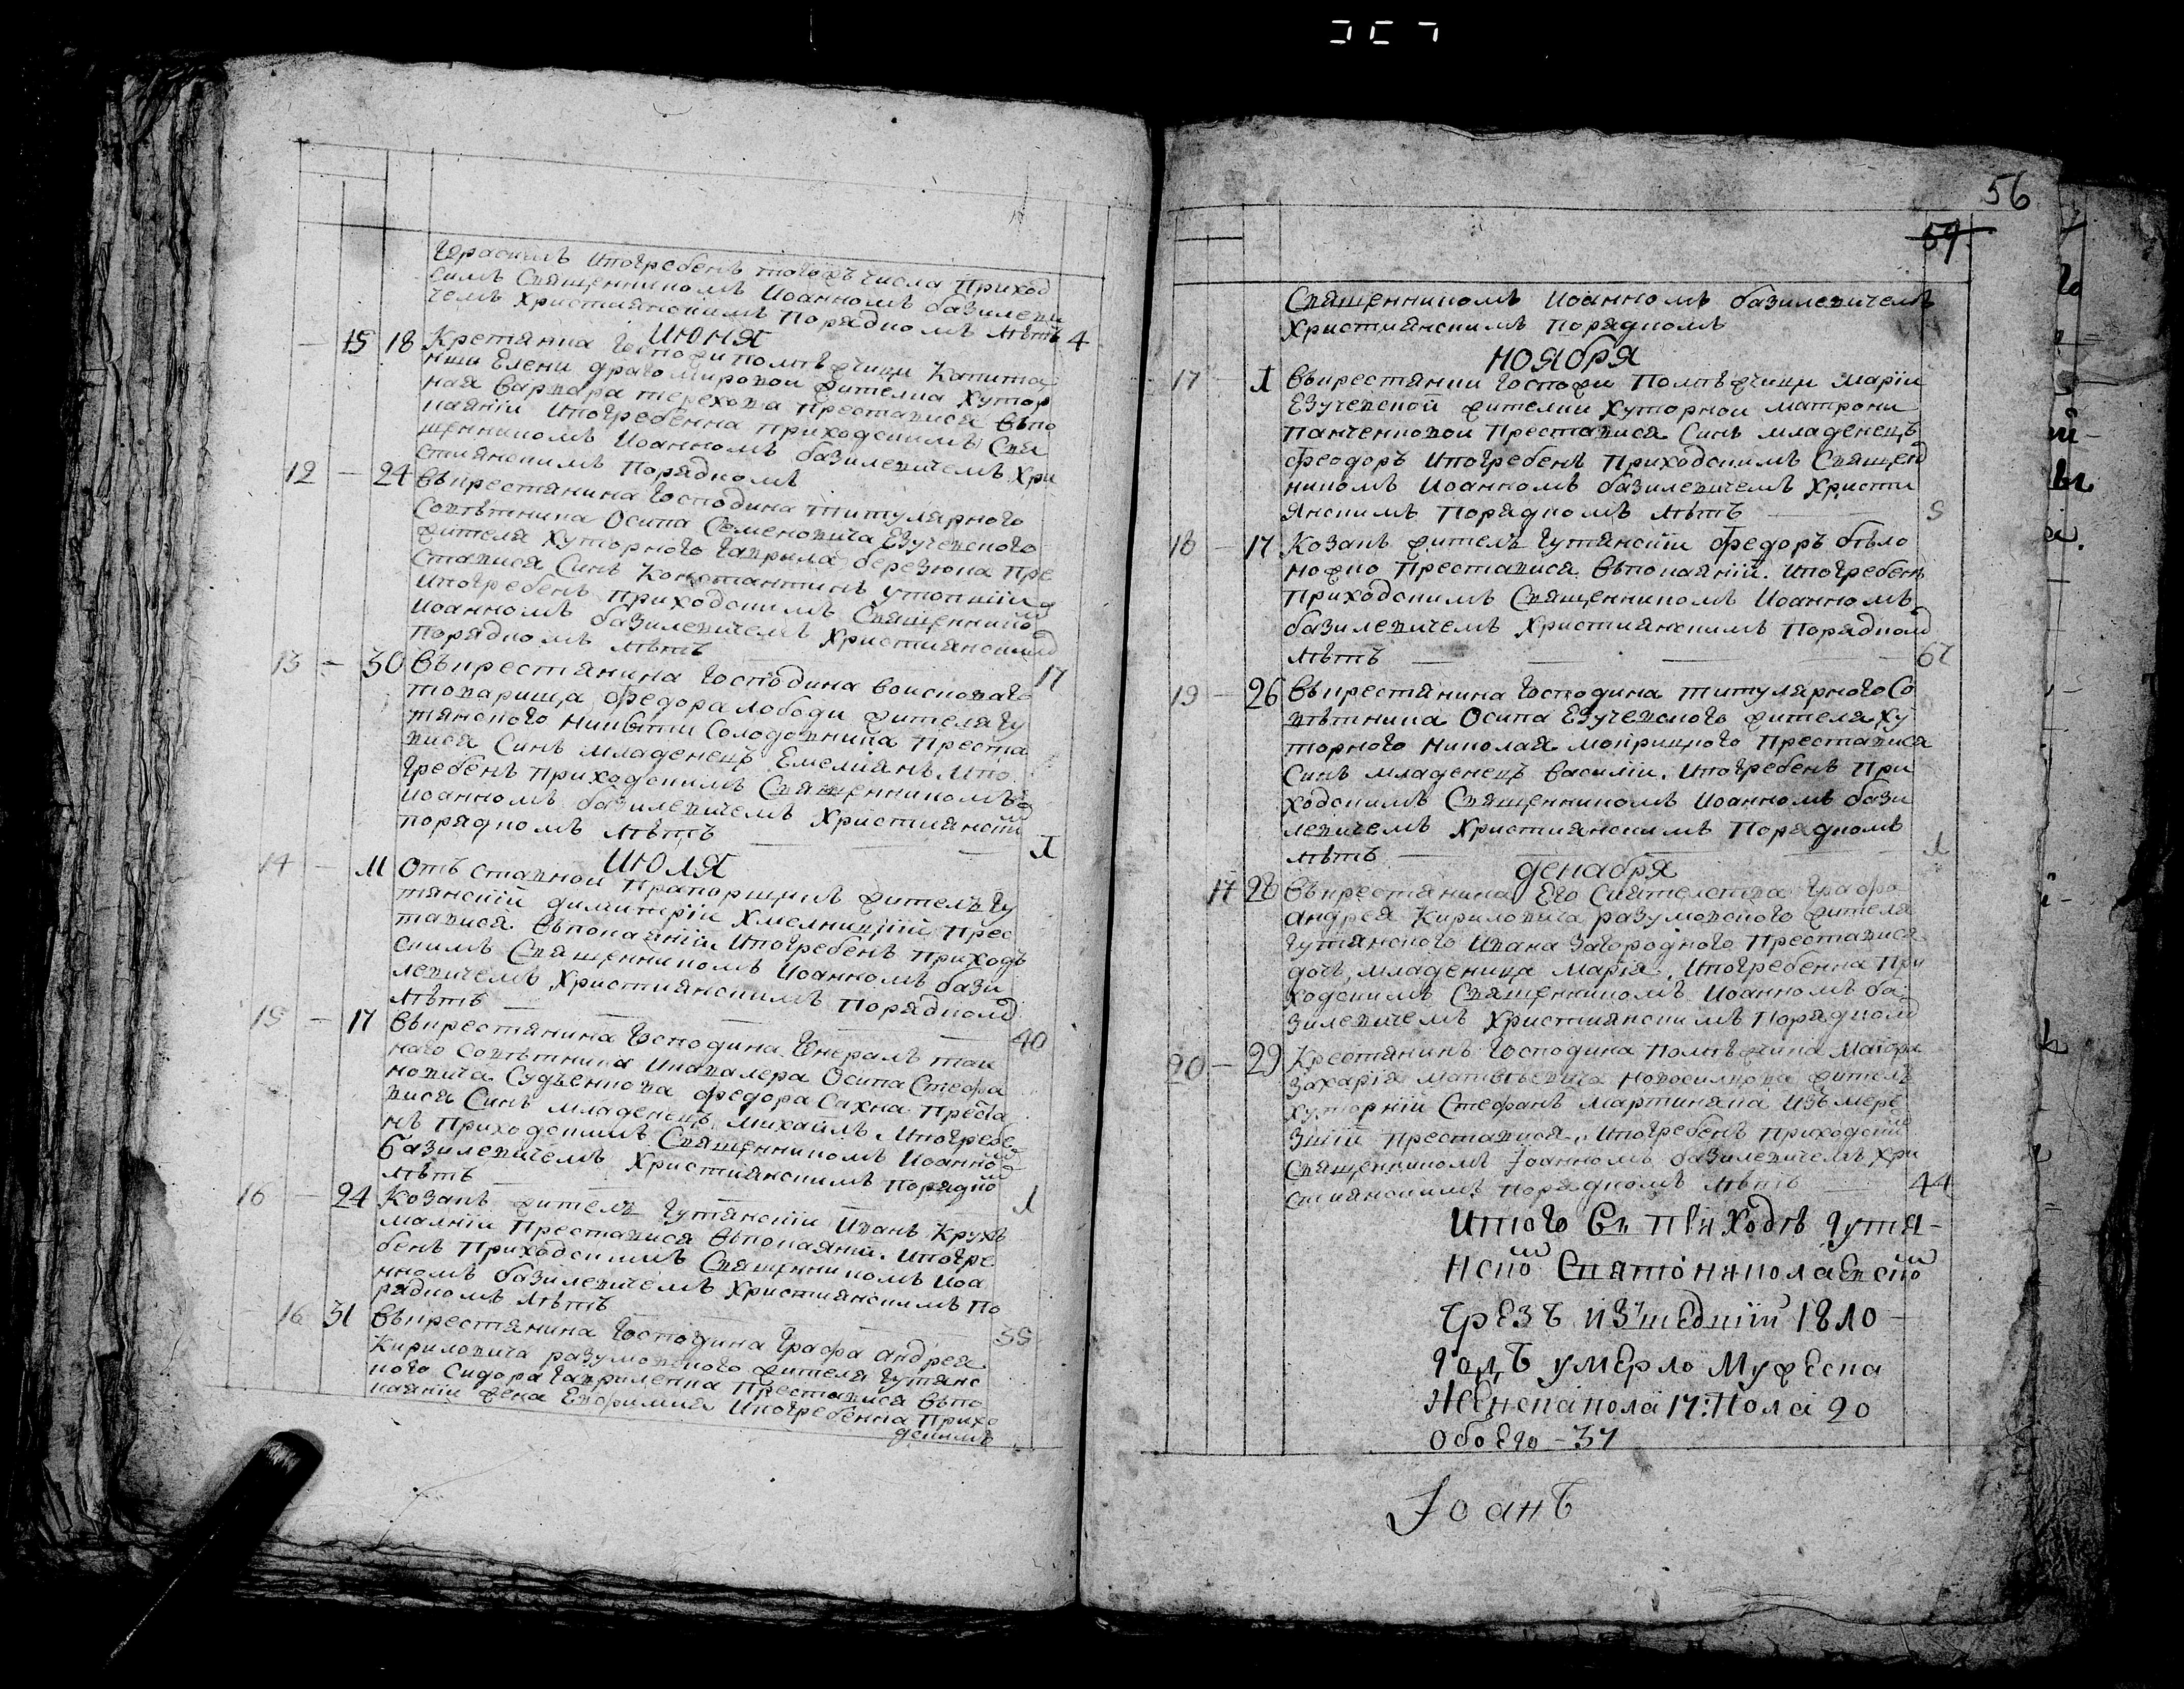 Герасимъ Ипогребенъ тогожъ числа Приход
скимъ Священникомъ Иоанномъ базилеви
чемъ Христианскимъ Порядкомъ лѣтъ 4
Июня
15 18 Крестянка Госпожи помѣщици Капита
нши Елени драгомировой жителка Хутор
ная Варвара терехова преставися Въпо
каянїи Ипогребенна приходскимъ Свя
щенникомъ Иоанномъ базилевичемъ Хри
стиянскимъ Порядкомъ
12 — 24 Въкрестянина Господина титулярного
Совѣтника Осипа Семеновича Езучевского
жителя Хуторного Гаврила березюка Пре
ставися Синъ Константинъ утопшїй
Ипогребенъ Приходскимъ Священнико
Иоанномъ базилевичемъ Християнским
Порядкомъ лѣтъ — 17
13 — 30 Въкрестянина Господина Воисковаго
товарища Федора лободи жителя Гу
тянского Никити Солодовника Преста
вися Синъ младенецъ Емелиянъ Ипо
гребенъ приходскимъ Священникомъ
Иоанномъ базилевичемъ Християнски
порядкомъ лѣтъ — 1
Июля
14 — 11 Отъ ставной Прапорщикъ жителъ Гу
тянскїй димитрїи Хмелницкїй Прес
тавися Въпокаянїи Ипогребенъ приходъ
скимъ Священникомъ Иоанномъ бази
левичемъ Християнскимъ Порядком
лѣтъ — 40
15 — 17 Въкрестянина Господина Генералъ таи
наго Совѣтника Икавалера Осипа Стефа
новича Судъенкова Федора Сахна Преста
вися Синъ младенецъ михаилъ Ипогребе
нъ Приходскимъ Священникомъ Иоанно
базилевичемъ Християнскимъ Порядко
лѣтъ — 1
16 — 24 Козакъ жителъ Гутянскїи Иванъ Круж
малнїи Преставися Въпокаянїи. Ипогре
бенъ Приходскимъ Священникомъ Иоа
нномъ базилевичемъ Християнскимъ По
рядкомъ лѣтъ — 35
16 31 Въкрестянина Господина Графа андрея
Кириловича разумовского жителя Гутянс
кого Сидора Гавриленка Преставися Въпо
каянїи жена Евфимия Ипогребенна Прихо
дскимъ
56
57
Священникомъ Иоанномъ базилевичемъ
Християнскимъ Порядкомъ
НОЯбРЯ
17 — 1 Въкрестянки Госпожи Помѣщици Марїи
Езучевской жителки Хуторнои матрони
Панченковои Преставися Синъ младенецъ
Феодоръ Ипогребенъ Приходскимъ Священ
никомъ Иоанномъ базилевичемъ Христи
янскимъ Порядкомъ лѣтъ — 5
18 — 17 Козакъ жителъ Гутянскїи Федоръ бѣло
ножко Преставися Въпокаянїй. Ипогребенъ
Приходскимъ Священникомъ Иоанномъ
базилевичемъ Християнскимъ Порядком
лѣтъ — 67
19 — 26 Въкрестянина Господина титулярного Со
вѣтника Осипа Езучевского жителя Ху
торного николая мокрицкого Преставися
Синъ младенецъ Василїи. Ипогребенъ При
ходскимъ Священникомъ Иоанномъ бази
левичемъ Християнскимъ Порядкомъ
лѣтъ — 1
декабря
17 28 Въкрестянина Его Сиятелства Графа
андрея Кириловича разумовского жителя
Гутянского Ивана Загородного Преставися
дочъ, младеница Марїя. Ипогребенна При
ходскимъ Священникомъ Иоанномъ ба
зилевичемъ Християнскимъ Порядком
20 — 29 Крестянинъ Господина Помѣщика Маїора
Захарїя матвѣевича новосилцова жителъ
хуторнїи Стефанъ мартиняка Изъ мерз
шїй Преставися. Ипогребенъ Приходски
Священникомъ Іоанномъ базилевичемъ Хри
стиянскимъ порядкомъ лѣтъ — 44
Итого Въ приходѣ Гутя-
нско Святониколаевско
Чрезъ изшедшїй 1810
Годъ умерло Мужеска
Женска пола 17: Пола 20
Обоего — 37
Іоанъ